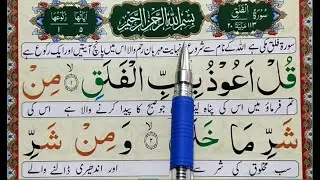 سُوْرَةُ الْفَلَقِ بِسْمِ اللّٰهِ الرَّحْمٰنِ الرَّحِيْمِ اٰيَاتُهَا ۵ رُكُوْعُهَا ۱
سورۃ فلق مکی ہے اللہ کے نام سے شروع نہایت مہربان رحم والا اس میں پانچ آیتیں اور ایک رکوع ہے
قُلْ اَعُوْذُ الْفَلَقِ ۙ﴿۱﴾ مِنْ
تم فرماؤ میں اس کی پناہ جو صبح کا پیدا کرنے والا ہے اس کی
شَرِّ مَا ﴿۲﴾ وَ مِنْ شَرِّ
سب مخلوق کی شر سے اور اندھیری ڈالنے والے